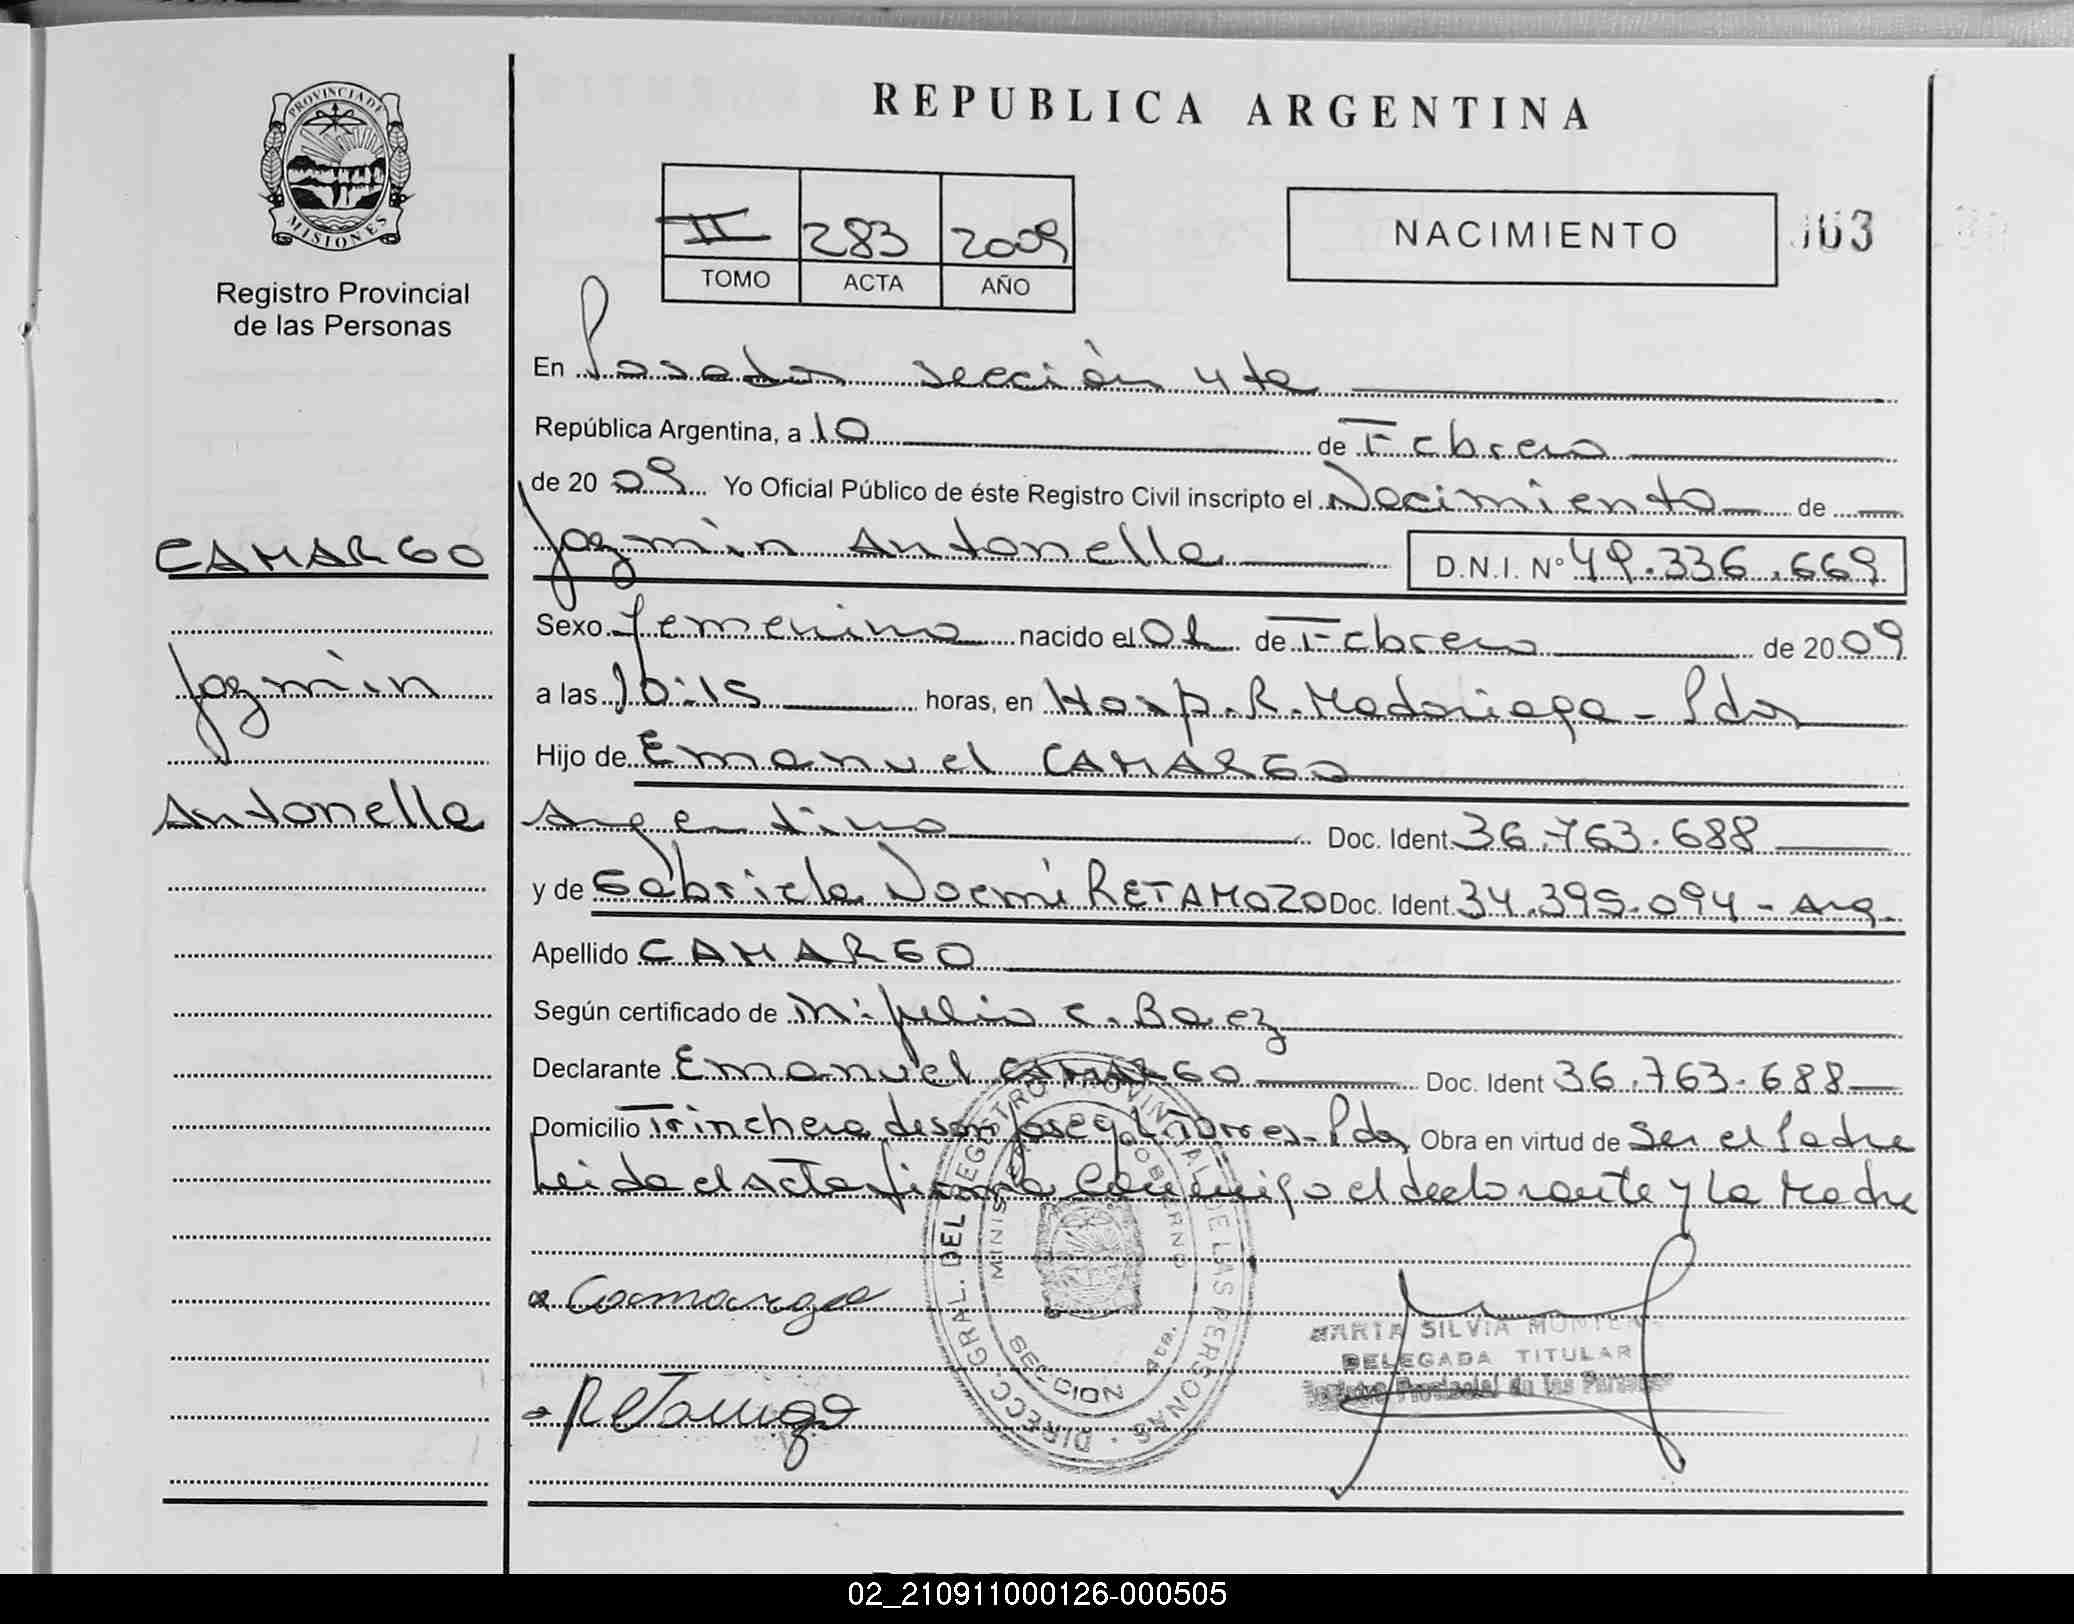 REPUBLICA ARGENTINA
PROVINCIA DE
MISIONES
Registro Provincial
de las Personas
II 283 2009
TOMO ACTA AÑO
NACIMIENTO
En Posadas sección 4ta
República Argentina, a 10 de Febrero
de 20 09 Yo Oficial Público de éste Registro Civil inscripto el Nacimiento de
CAMARGO
Jazmin Antonella D.N.I. Nº 49.336.669
Sexo femenino nacido el 01 de Febrero de 20 09
Jazmin
a las 10:15 horas, en Hosp. R. Madariaga - Pdas
Hijo de Emanuel CAMARGO
Antonella
Argentino Doc. Ident. 36.763.688
y de Gabriela Noemi RETAMOZO Doc. Ident. 34.395.094 - Arg.
Apellido CAMARGO
Según certificado de Julio C. Baez
Declarante Emanuel CAMARGO Doc. Ident 36.763.688
Domicilio Trinchera de San José Torres - Pdas Obra en virtud de Ser el Padre
Leida el Acta firma el declarante y La Madre
DIRECC. GRAL. DEL REGISTRO PROVINCIAL DE LAS PERSONAS
SECCION 4ta.
Camargo
MARTA SILVIA
DELEGADA TITULAR
Registro Provincial de las Personas
02_210911000126-000505